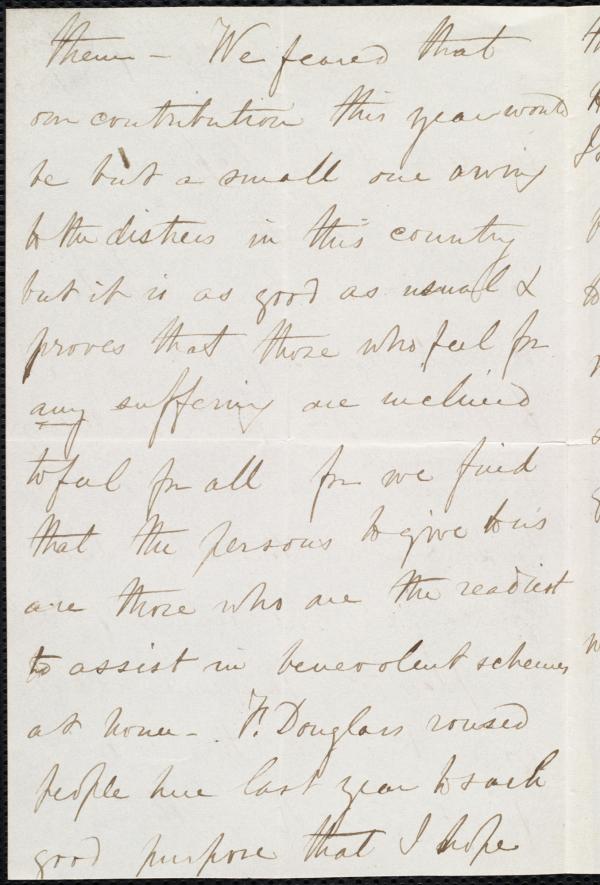 them - We feared that
our contribution this year would
be but a small one owing
to the distress in this country
but it is as good as usual &
proves that those who feel for
any suffering are inclined
to feel for all for we find
that the persons to give to us
are those who are the readiest
to assist in benevolent schemes
at home - F. Douglass roused
people here last year to such
good purpose that I hope